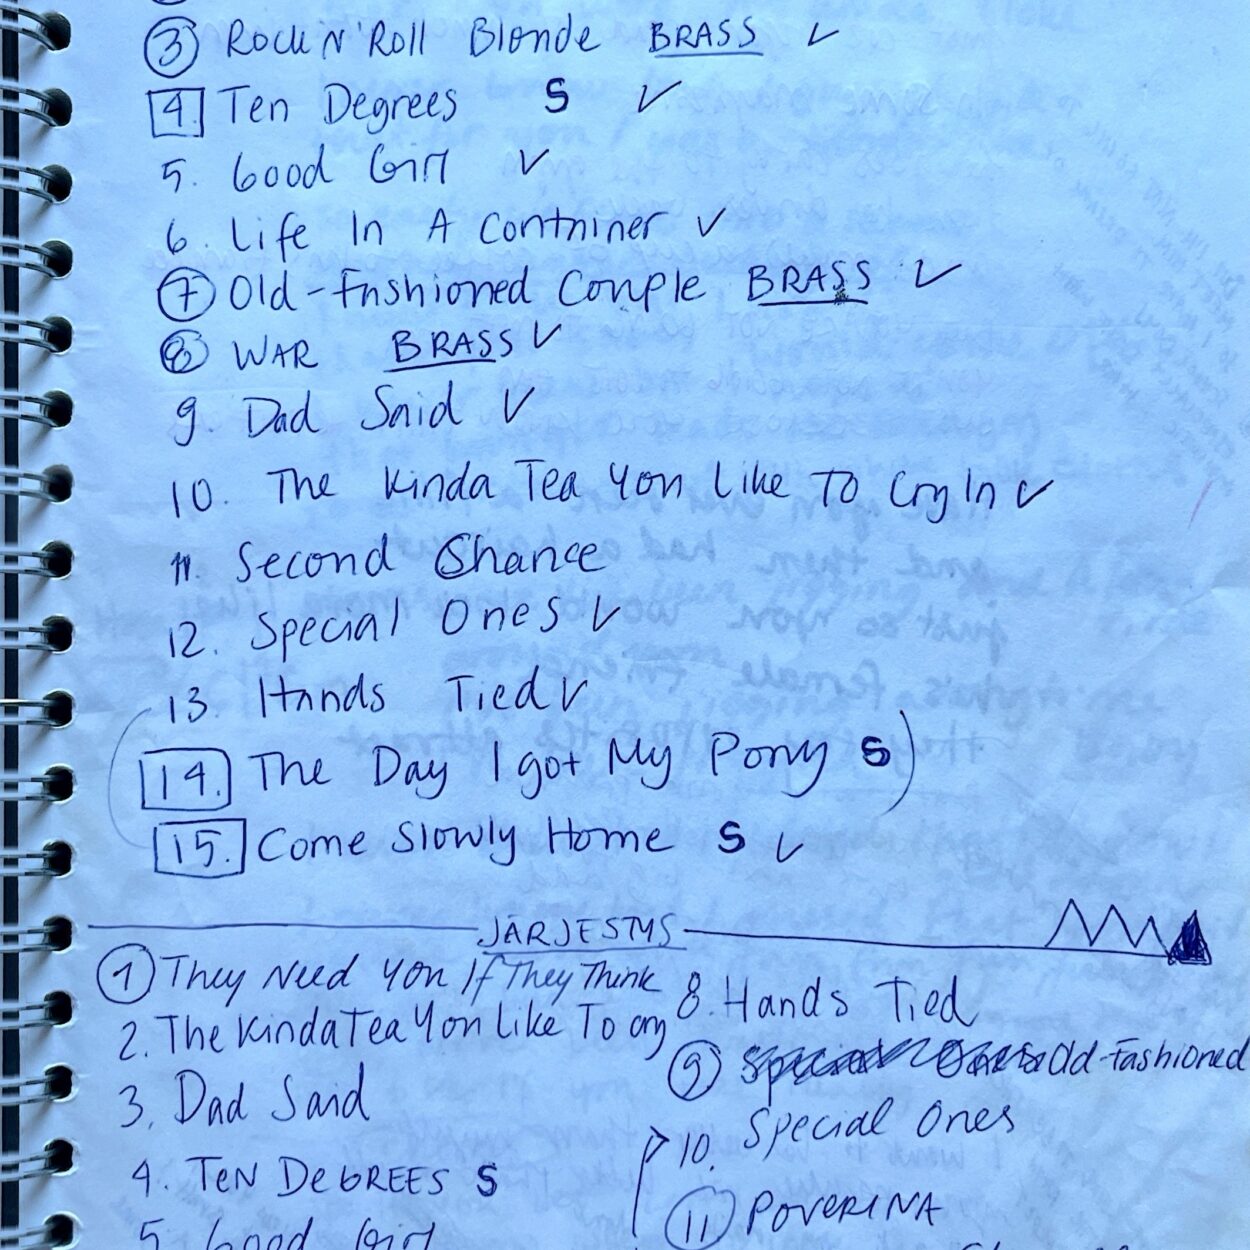 3 Rock N'Roll Blonde BRASS ✓
4. Ten Degrees S ✓
5. Good Girl ✓
6. Life In A Container ✓
7 Old-Fashioned Couple BRASS ✓
8 WAR BRASS ✓
9. Dad Said ✓
10. The Kinda Tea You Like To Cry In ✓
11. Second Chance
12. Special Ones ✓
13. Hands Tied ✓
14. The Day I got My Pony S
15. Come Slowly Home S ✓
JÄRJESTYS
1 They Need You If They Think
2. The Kinda Tea You Like To cry
3. Dad Said
4. TEN DEGREES S
5. Good Girl
8. Hands Tied
9 Special Ones Old-Fashioned
10. Special Ones
11 POVERINA